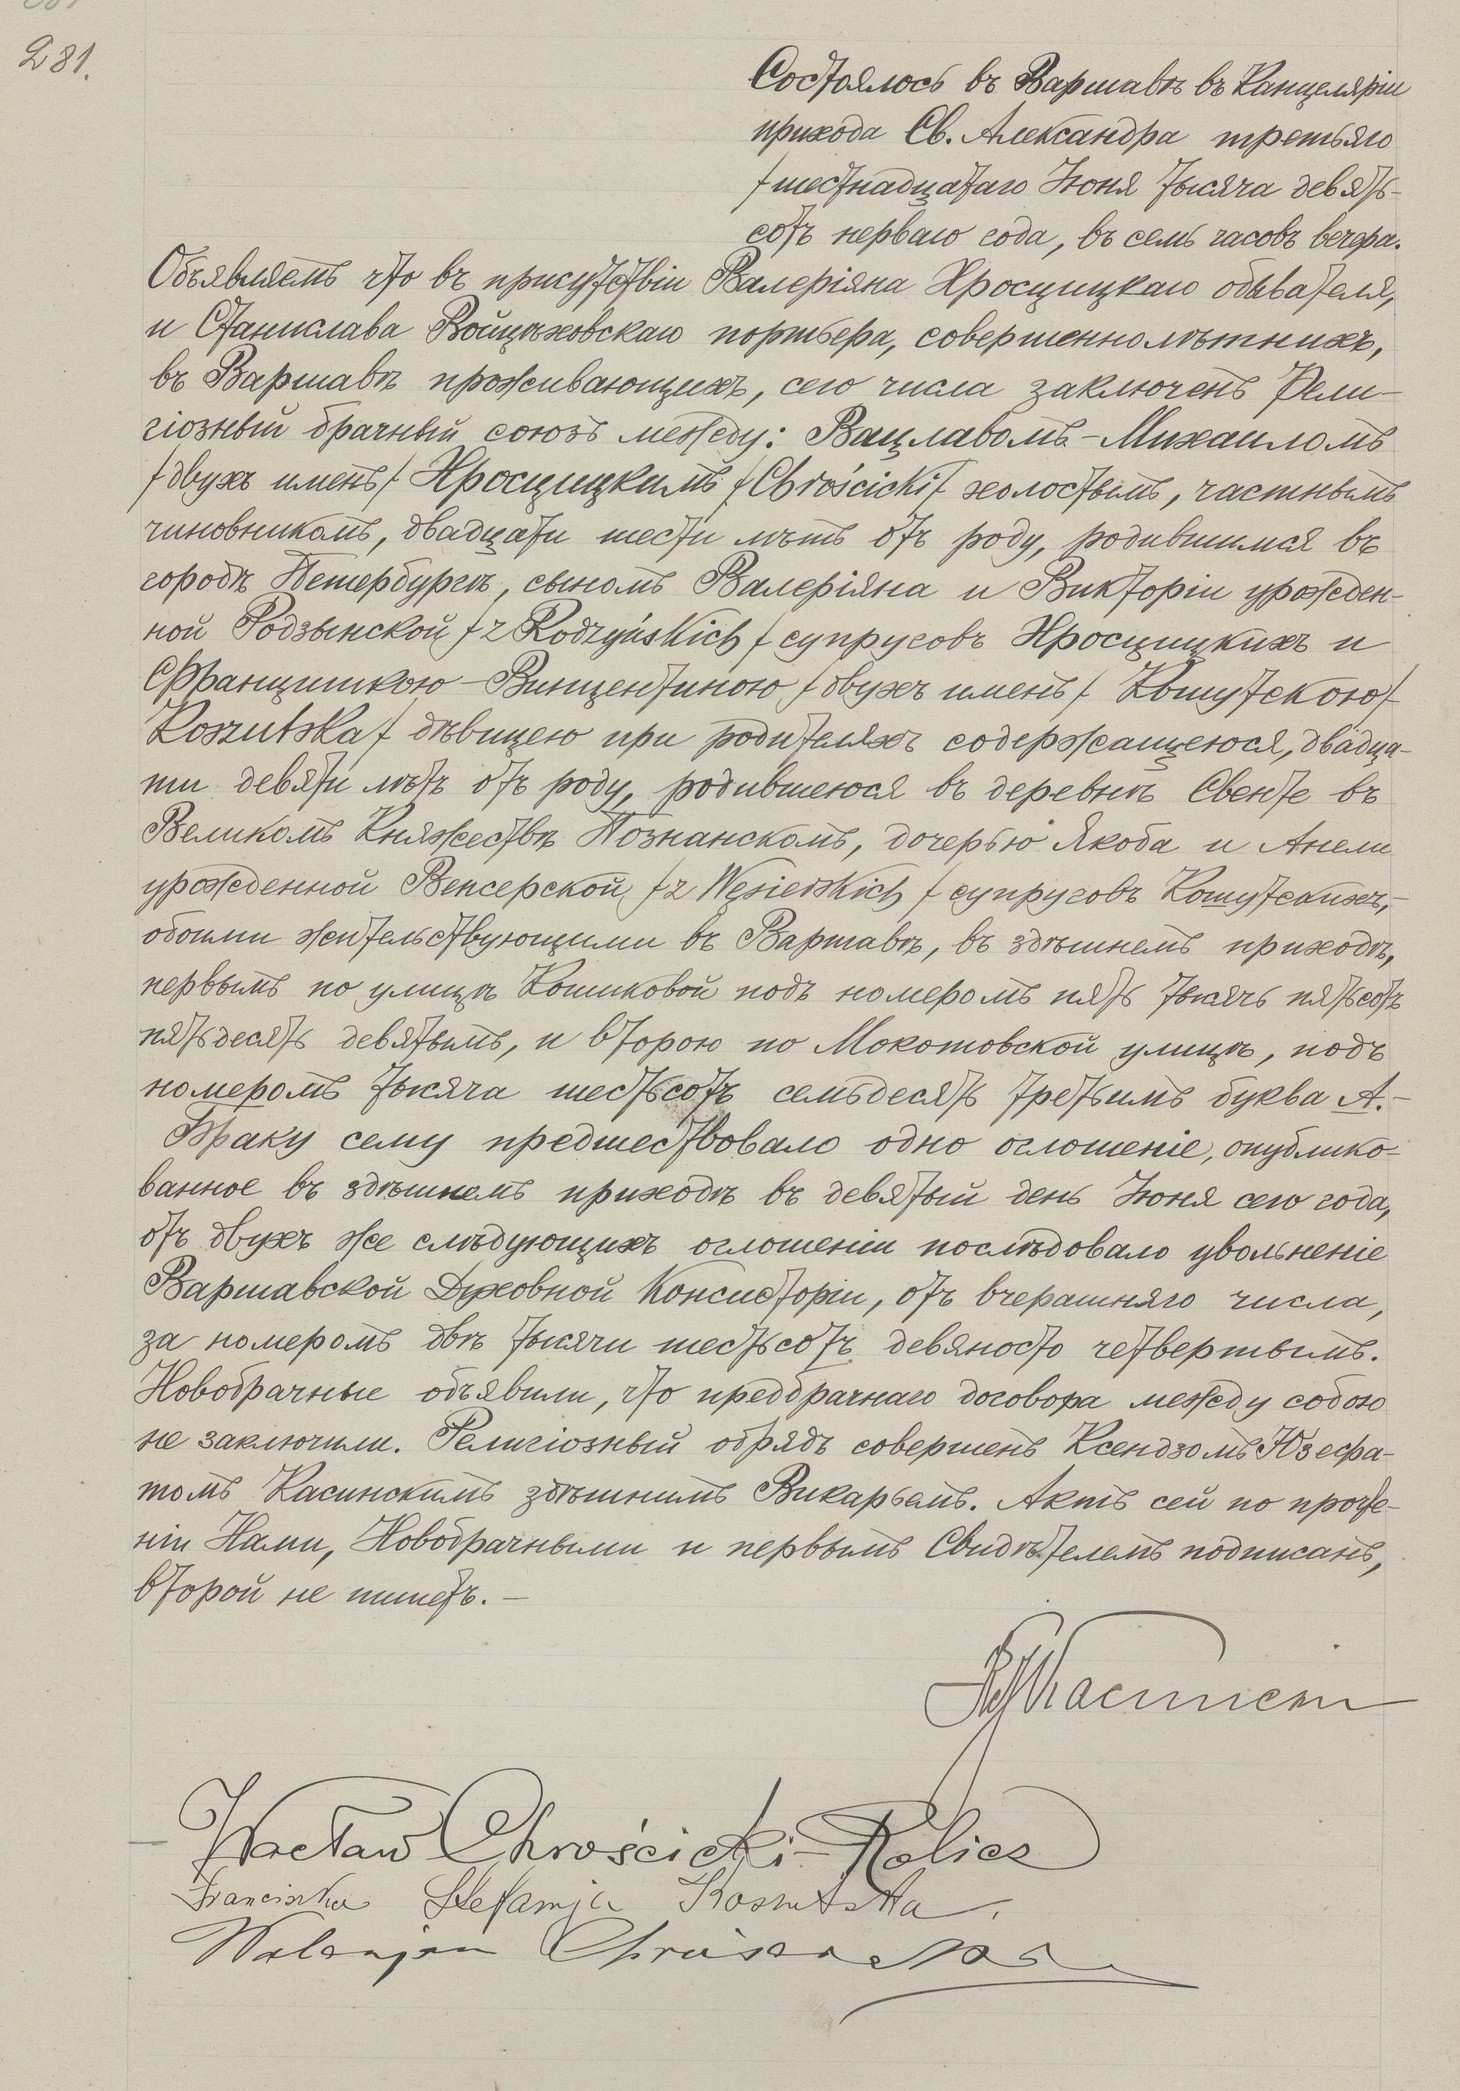 281.
Состоялось въ Варшавѣ въ Канцеляріи
прихода Св. Александра третьяго
/шестнадцатаго Іюня тысяча девять-
сотъ перваго года, въ семь часовъ вечера.
Объявляемъ что въ присутствіи Валеріяна Хросцицкаго обывателя,
и Станислава Войцѣховскаго портьера, совершеннолѣтнихъ,
въ Варшавѣ проживающихъ, сего числа заключенъ Рели-
гіозный брачный союзъ между: Вацлавомъ-Михаиломъ
/двухъ именъ/ Хросцицкимъ /Chrościcki/ холостымъ, частнымъ
чиновникомъ, двадцати шести лѣтъ отъ роду, родившимся въ
городѣ Петербургѣ, сыномъ Валеріяна и Викторіи урожден-
ной Родзынской /z Rodzyńskich/ супруговъ Хросцицкихъ и
Францишкою-Винцентиною /двухъ именъ/ Кошутскою/
Koszutska/ дѣвицею при родителяхъ содержащеюся, двадца-
ти девяти лѣтъ отъ роду, родившеюся въ деревнѣ Свенте въ
Великомъ Княжествѣ Познанскомъ, дочерью Якоба и Анели
урожденной Венсерской /z Węsierskich/ супруговъ Кошутскихъ,-
обоими жительствующими въ Варшавѣ, въ здѣшнемъ приходѣ,
первымъ по улицѣ Кошиковой подъ номеромъ пять тысячъ пятьсотъ
пятьдесятъ девятымъ, и второю по Мокотовской улицѣ, подъ
номеромъ тысяча шестьсотъ семьдесятъ третьимъ буква А.-
Браку сему предшествовало одно оглошеніе, опублико-
ванное въ здѣшнемъ приходѣ въ девятый день Іюня сего года,
отъ двухъ же слѣдующихъ оглошеніи послѣдовало увольненіе
Варшавской Духовной Консисторіи, отъ вчерашняго числа,
за номеромъ двѣ тысячи шестьсотъ девяносто четвертымъ.
Новобрачные объявили, что предбрачнаго договора между собою
не заключили. Религіозный обрядъ совершенъ Ксендзомъ Юзефа-
томъ Касинскимъ здѣшнимъ Викаріемъ. Актъ сей по прочте-
ніи Нами, Новобрачными и первымъ Свидѣтелемъ подписанъ,
второй не пишетъ.-
Касински
Wacław Chrościcki-Rolicz
Franciszka Stefanja Koszutska.
Waleryan Chrościcki